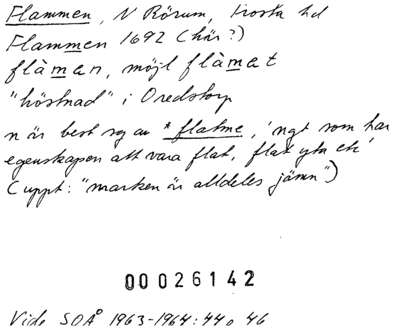 Flammen, N Rörum, Frosta hd
Flammen 1692 (här?)
flàman, möjl flàmat
"höstnad" i Oredstorp
n är best sg av *flatme, 'ngt som har
egenskapen att vara flat, flat yta etc'
(uppt: "marken är alldeles jämn")
00026142
Vide SOÅ 1963-1964:44o 46